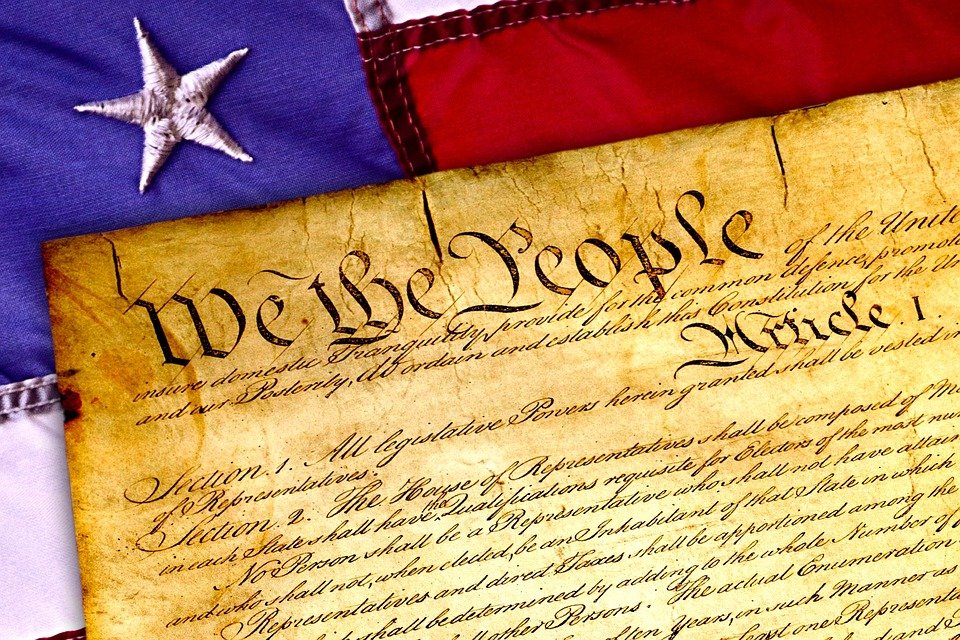 We the People of the Unite
insure domestic Tranquility, provide for the common defence, promote
and our Posterity, do ordain and establish this Constitution for the Un
Article. I.
Section. 1. All legislative Powers herein granted shall be vested in
of Representatives.
Section. 2. The House of Representatives shall be composed of Me
in each State shall have the Qualifications requisite for Electors of the most num
No Person shall be a Representative who shall not have attain
and who shall not, when elected, be an Inhabitant of that State in which
Representatives and direct Taxes shall be apportioned among the
shall be determined by adding to the whole Number of
other Persons. The actual Enumeration
of ten Years, in such Manner as
least one Representa